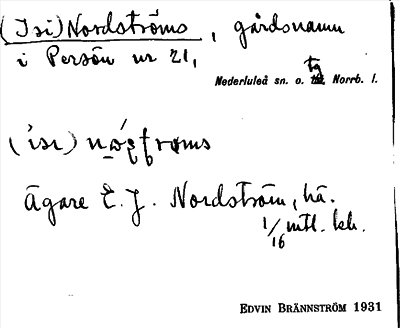 (Isi)Nordströms, gårdsnamn
i Persön nr 21,
Nederluleå sn. o. tg Norrb. l.
Ägare E. J. Nordström, hä.
1/16 mtl. kh.
EDVIN BRÄNNSTRÖM 1931